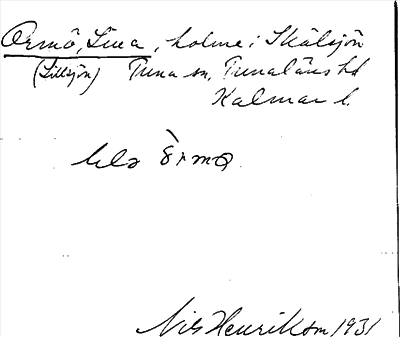 Ormö, Lilla, holme i Skälsjön
(Lillsjön) Tuna sn, Tunaläns hd
Kalmar l.
lɩlə òrmø
Nils Henrikson 1931